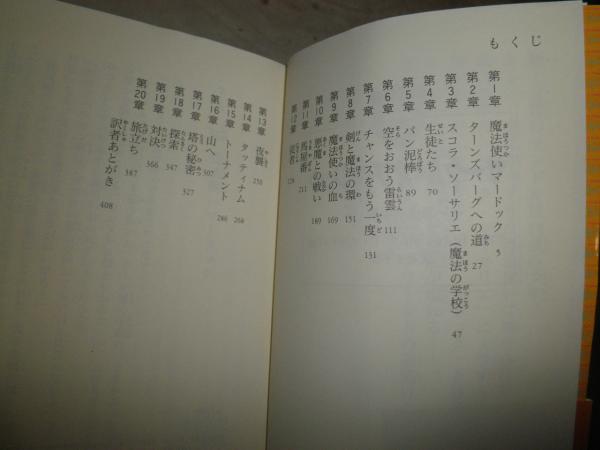 もくじ
第1章 魔法使いマードック 5
第2章 ターンズバーグへの道 27
第3章 スコラ・ソーサリエ(魔法の学校) 47
第4章 生徒たち 70
第5章 パン泥棒 89
第6章 空をおおう雷雲 111
第7章 チャンスをもう一度 131
第8章 剣と魔法の環 151
第9章 魔法使いの血 169
第10章 悪魔との戦い 189
第11章 馬屋番 211
第12章
第13章 夜襲 250
第14章 タッティナム 268
第15章 トーナメント 286
第16章 山へ 307
第17章 塔の秘密 327
第18章 探索 347
第19章 対決 366
第20章 旅立ち 387
訳者あとがき 408